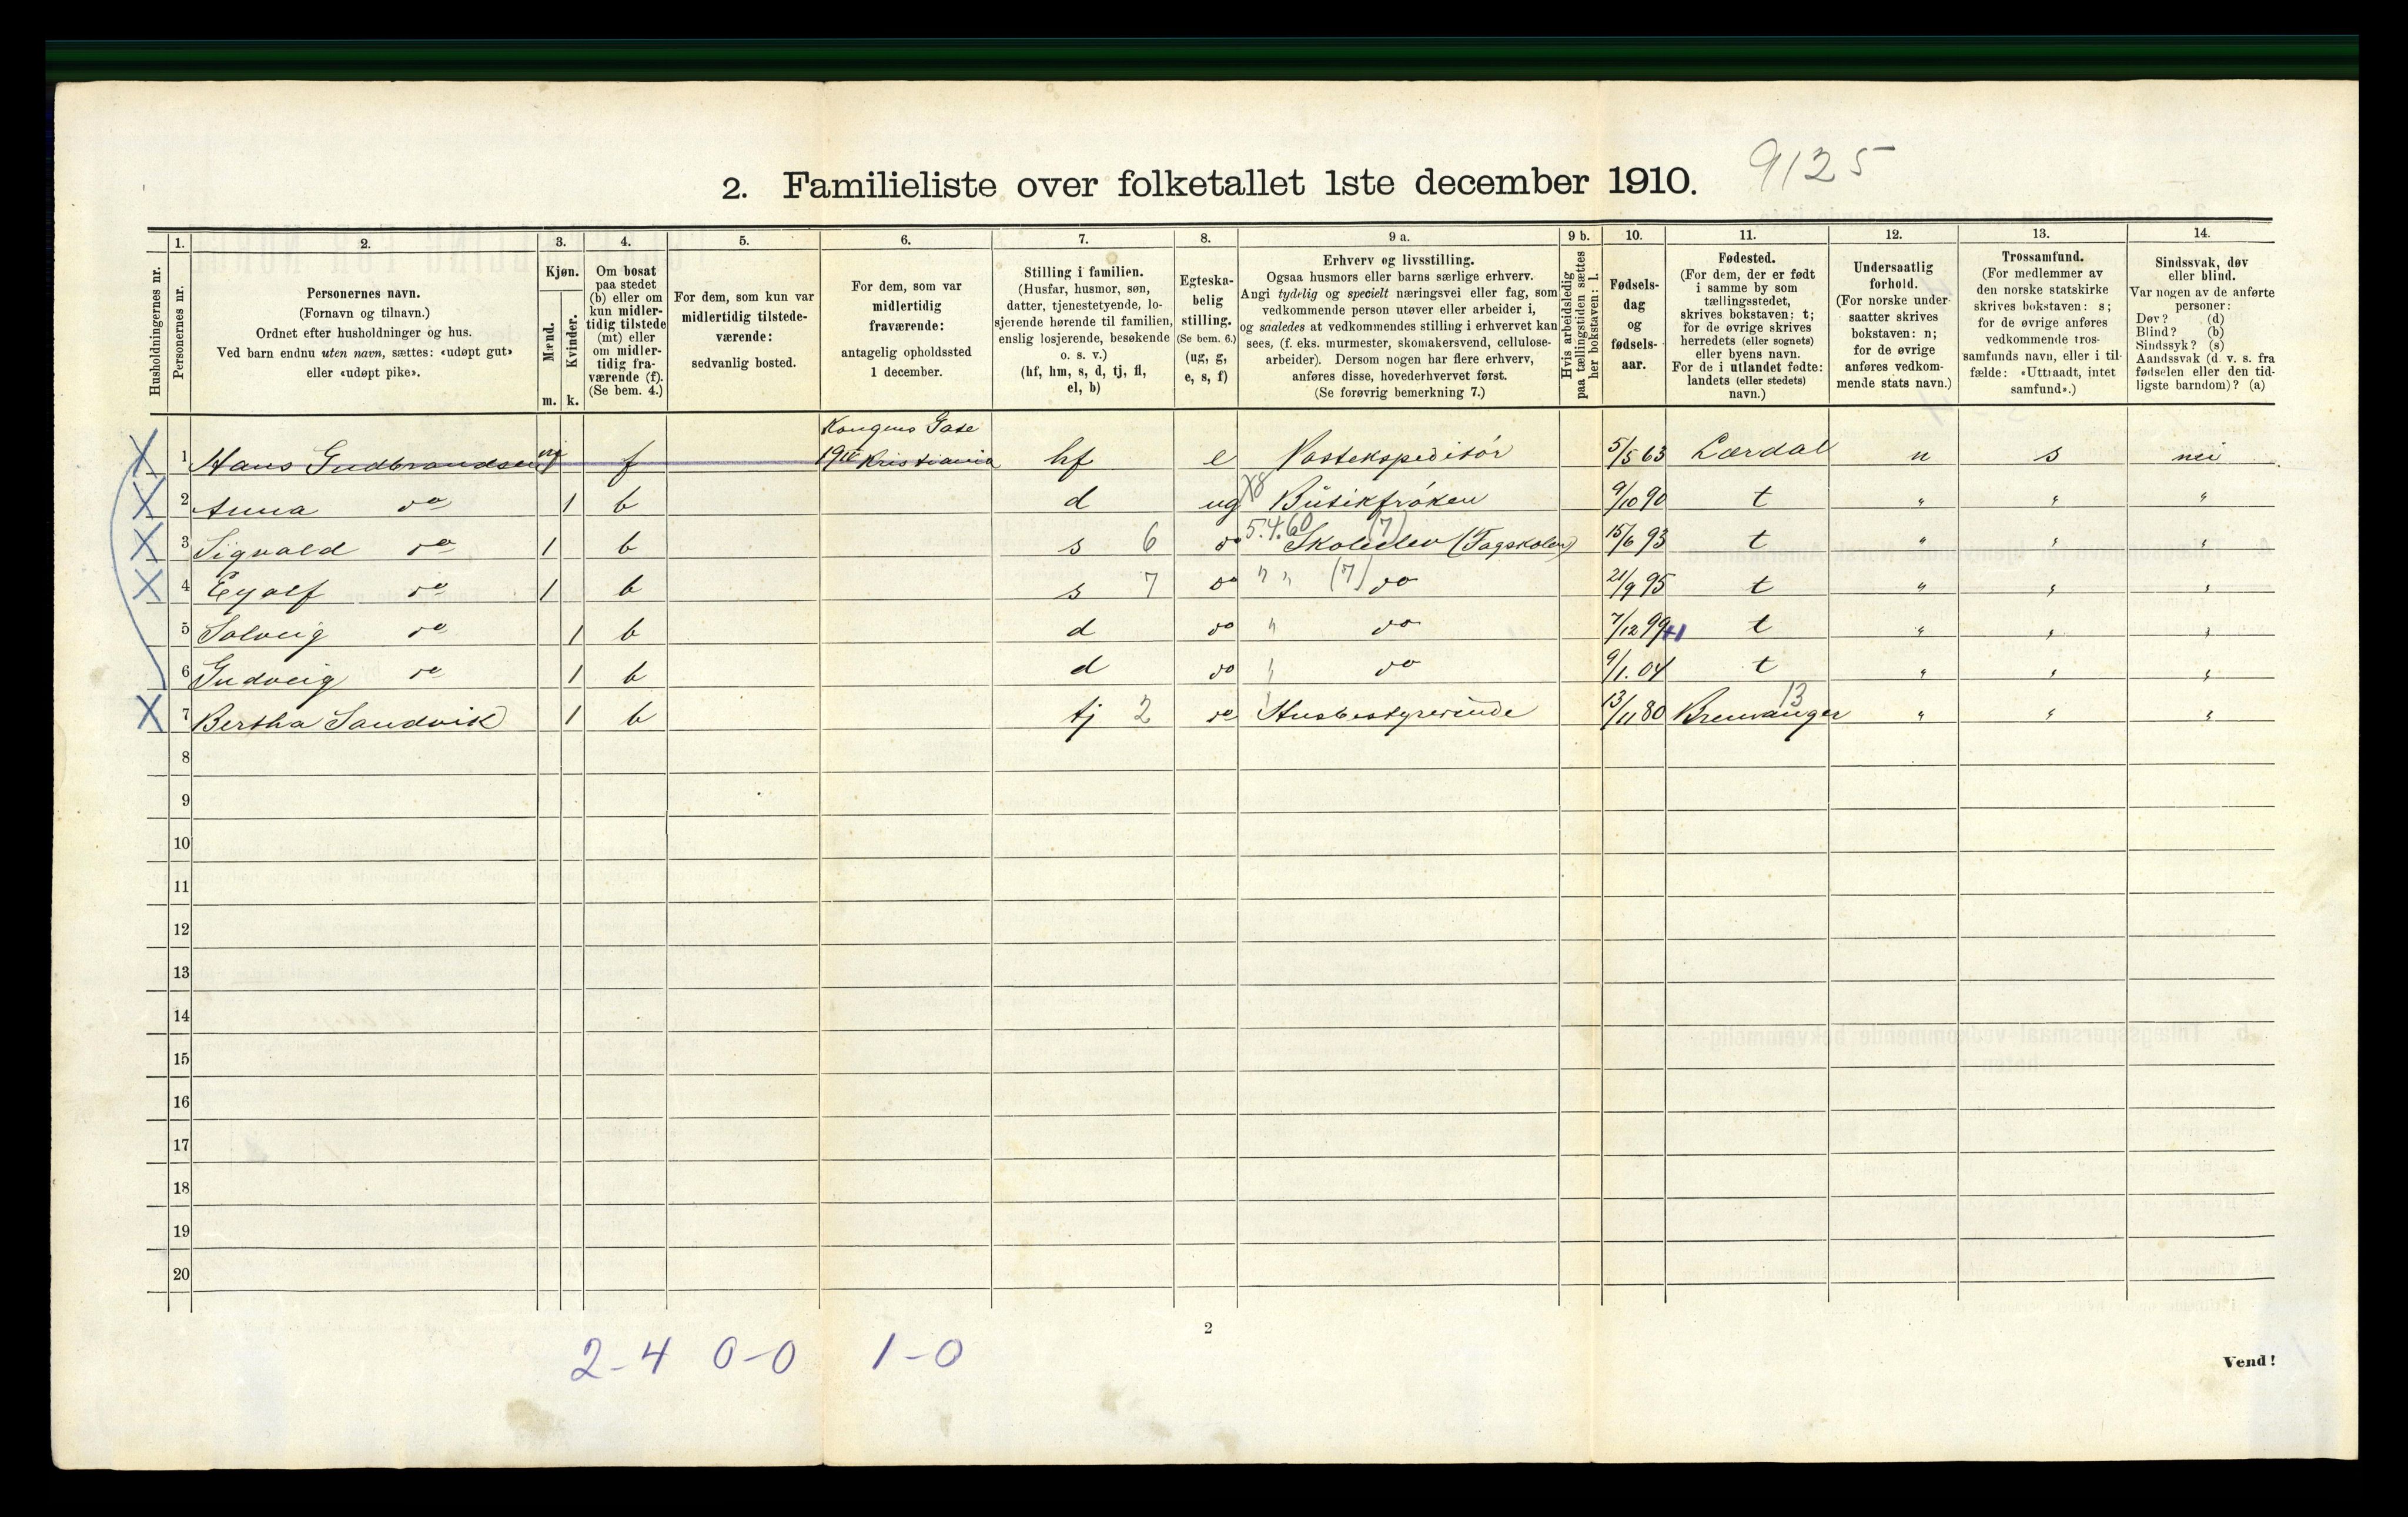 2. Familieliste over folketallet 1ste december 1910. 9125
Husholdningernes nr.
1.
Personernes nr.
2.
Personernes navn.
(Fornavn og tilnavn.)
Ordnet efter husholdninger og hus.
Ved barn endnu uten navn, sættes: «udøpt gut»
eller «udøpt pike».
3.
Kjøn.
Mænd.
Kvinder.
m. k.
4.
Om bosat
paa stedet
(b) eller om
kun midler-
tidig tilstede
(mt) eller
om midler-
tidig fra-
værende (f).
(Se bem. 4.)
5.
For dem, som kun var
midlertidig tilstede-
værende:
sedvanlig bosted.
6.
For dem, som var
midlertidig
fraværende:
antagelig opholdssted
1 december.
7.
Stilling i familien.
(Husfar, husmor, søn,
datter, tjenestetyende, lo-
sjerende hørende til familien,
enslig losjerende, besøkende
o. s. v.)
(hf, hm, s, d, tj, fl,
el, b)
8.
Egteska-
belig
stilling.
(Se bem. 6.)
(ug, g,
e, s, f)
9 a.
Erhverv og livsstilling.
Ogsaa husmors eller barns særlige erhverv.
Angi tydelig og specielt næringsvei eller fag, som
vedkommende person utøver eller arbeider i,
og saaledes at vedkommendes stilling i erhvervet kan
sees, (f. eks. murmester, skomakersvend, cellulose-
arbeider). Dersom nogen har flere erhverv,
anføres disse, hovederhvervet først.
(Se forøvrig bemerkning 7.)
9 b.
Hvis arbeidsledig
paa tællingstiden sættes
her bokstaven: l.
10.
Fødsels-
dag
og
fødsels-
aar.
11.
Fødested.
(For dem, der er født
i samme by som
tællingsstedet,
skrives bokstaven: t;
for de øvrige skrives
herredets (eller sognets)
eller byens navn.
For de i utlandet fødte:
landets (eller stedets)
navn.)
12.
Undersaatlig
forhold.
(For norske under-
saatter skrives
bokstaven: n;
for de øvrige
anføres vedkom-
mende stats navn.)
13.
Trossamfund.
(For medlemmer av
den norske statskirke
skrives bokstaven: s;
for de øvrige anføres
vedkommende tros-
samfunds navn, eller i til-
fælde: «Uttraadt, intet
samfund».)
14.
Sindssvak, døv
eller blind.
Var nogen av de anførte
personer:
Døv? (d)
Blind? (b)
Sindssyk? (s)
Aandssvak (d. v. s. fra
fødselen eller den tid-
ligste barndom)? (a)
Kongens Gade
X 1 Hans Gudbrandsen f 19 Kristiania hf e Postekspeditør 5/5 63 Lærdal n s nei
X 2 Anna do 1 b d ug X8 Butikfrøken 9/10 90 t " " "
5.4.60 (7)
X 3 Sigvald do 1 b s 6 do Skoleelev (Fagskolen) 15/6 93 t " " "
X 4 Eyolf do 1 b s 7 do " " (7) do 21/9 95 t " " "
5 Solveig do 1 b d do " do 7/12 99 +1 t " " "
6 Gudveig do 1 b d do " do 9/1. 04 t " " "
X 7 Bertha Sandvik 1 b tj 2 do Husbestyrerinde 13/11 80 Bremanger 13 " " "
8
9
10
11
12
13
14
15
16
17
18
19
20
2
2-4 0-0 1-0
Vend!